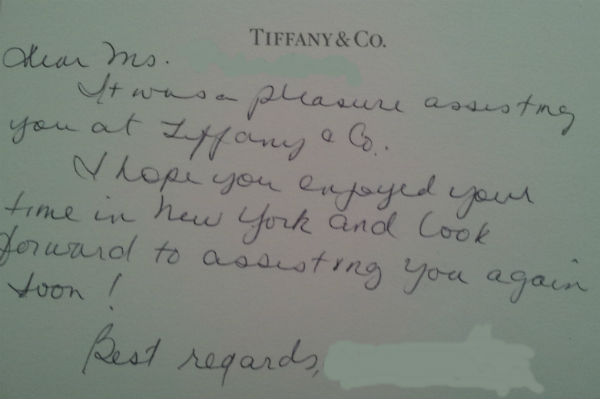 TIFFANY & CO.
Dear Ms.
It was a pleasure assisting
you at Tiffany & Co.
I hope you enjoyed your
time in New York and look
forward to assisting you again
soon!
Best regards,